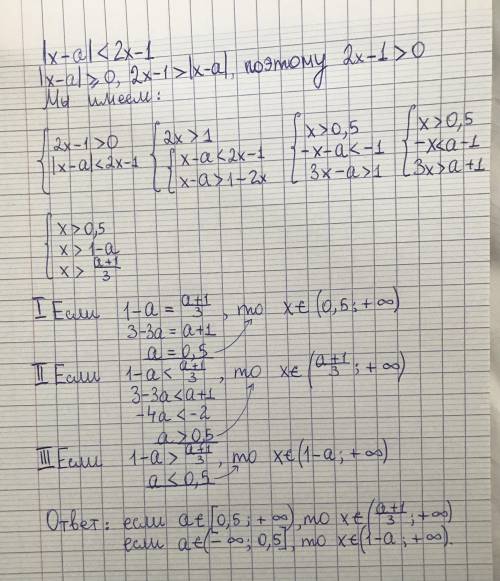 |x-a|<2x-1
|x-a|≥0, 2x-1>|x-a|, поэтому 2x-1>0
Мы имеем:
{2x-1>0 {2x>1 {x>0,5 {x>0,5
{|x-a|<2x-1 {{x-a<2x-1 {-x-a<-1 {-x<a-1
{{x-a>1-2x {3x-a>1 {3x>a+1
{x>0,5
{x>1-a
{x>(a+1)/3
I Если 1-a=(a+1)/3, то x∈(0,5;+∞)
3-3a=a+1
a=0,5
II Если 1-a<(a+1)/3, то x∈((a+1)/3;+∞)
3-3a<a+1
-4a<-2
a>0,5
III Если 1-a>(a+1)/3, то x∈(1-a;+∞)
a<0,5
Ответ: если a∈[0,5;+∞), то x∈((a+1)/3;+∞)
если a∈(-∞;0,5], то x∈(1-a;+∞).